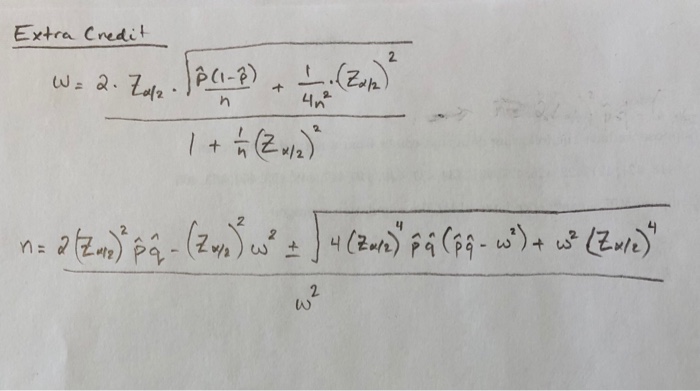 Extra Credit
ω = 2 · Z_{α/2} · √( p̂(1-p̂)/n + 1/(4n²) · (Z_{α/2})² )
1 + 1/n (Z_{α/2})²
n = 2(Z_{α/2})² p̂q̂ - (Z_{α/2})² ω² ± √( 4(Z_{α/2})⁴ p̂q̂ (p̂q̂ - ω²) + ω² (Z_{α/2})⁴ )
ω²